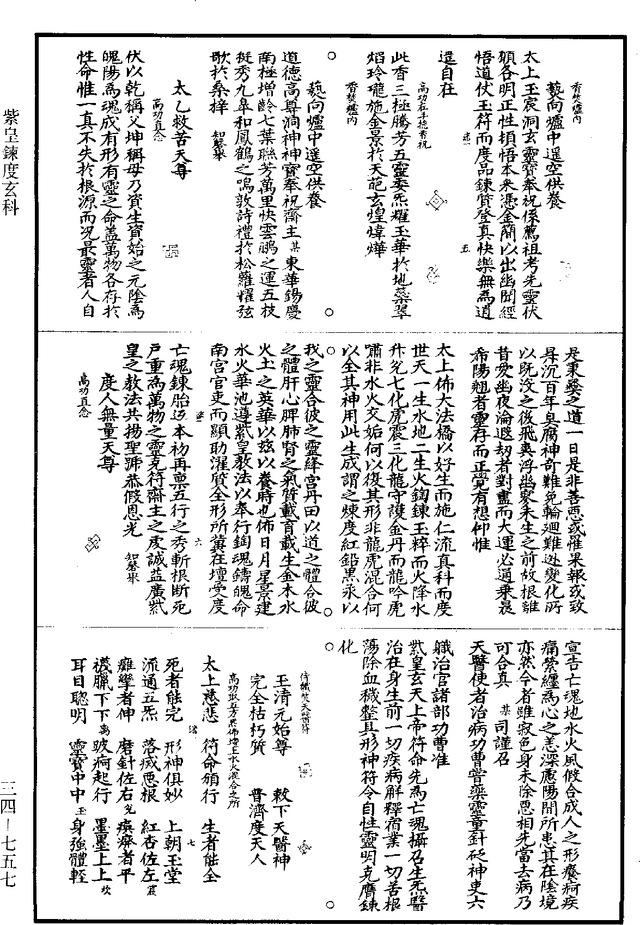 紫皇鍊度玄科
三四—七五七
香焚爐內
爇向爐中遥空供養
太上玉宸洞玄靈寶奉祝係薦祖考先靈伏
願各明正性頓悟本來憑金簡以出幽聞經
悟道仗玉符而度品鍊質登真快樂無爲逍
還自在
高功右手捻香祝
此香三極騰芳五靈委炁耀玉華於地蘂翠
焰玲瓏施金景於天葩玄煌煒燁
香焚爐內
爇向爐中遥空供養
道德高尊洞神神寶奉祝齋主某東華錫慶
南極增齡七葉聯芳萬里快雲鵬之運五枝
挺秀九皋和鳳鶴之鳴敦詩禮於松蘿耀弦
歌於桑梓 知磬舉
太乙救苦天尊
高功直念
伏以乾稱父坤稱母乃資生資始之元陰爲
魄陽爲魂成有形有靈之命蓋萬物各存於
性命惟一真不失於根源而况最靈者人自
是秉彝之道一日是非善惡或罹果報或致
昇沉百年臭腐神奇難免輪廻難逃變化所
以既没之後飛爽浮幽㝠未生之前故根離
昔愛幽夜淪遐劫者對盡而大運必通乘晨
希陽翹者靈存而正覺有想仰惟
太上佈大法橋以好生而施仁流真科而度
世天一生水地二生火鍧鍊玉粹而火降水
升兌七化虎震三化龍守護金丹而龍吟虎
嘯非水火交姤何以復其形非龍虎混合何
以全其神用此生成謂之煉度紅鉛黑汞以
我之靈合彼之靈絳宮丹田以道之體合彼
之體肝心脾肺腎之氣質載育載生金木水
火土之英華以兹以養時也佈日月星景建
水火華池導紫皇教法以奉行鍧魂鑄魄命
南宫官吏而顯助濯質全形所冀在壇受度
亡魂鍊胎返本朸再禀五行之秀斬根斷死
戶重爲萬物之靈克符齋主之虔誠益廣紫
皇之教法共揚聖號恭假恩光 知磬舉
度人無量天尊
高功直念
宣告亡魂地水火風假合成人之形癢疴疾
痛縈纏爲心之恙深慮陽間所患其在陰境
亦然今者雖寂色身未除惡相先當去病乃
可合真 某司謹召
天醫使者治病功曹嘗藥靈童針砭神吏六
職治官諸部功曹准
紫皇玄天上帝符命先爲亡魂攝召生炁醫
治在身生前一切疾病解釋宿業一切苦根
蕩除血穢整具形神符令自性靈明克膺鍊
化
玉清元始尊 敕下天醫神
完全枯朽質 普濟度天人
太上慈悲 符命頒行 生者能全
死者能完 形神俱妙 上朝玉堂
流通五炁 落戚惡根 紅杏佐左震
癱攣者伸 磨針佐右兌 瘓瘵者平
襪臘下下離 跛痾起行 墨墨上上坎
耳目聰明 靈寶中中玉 身強體輕